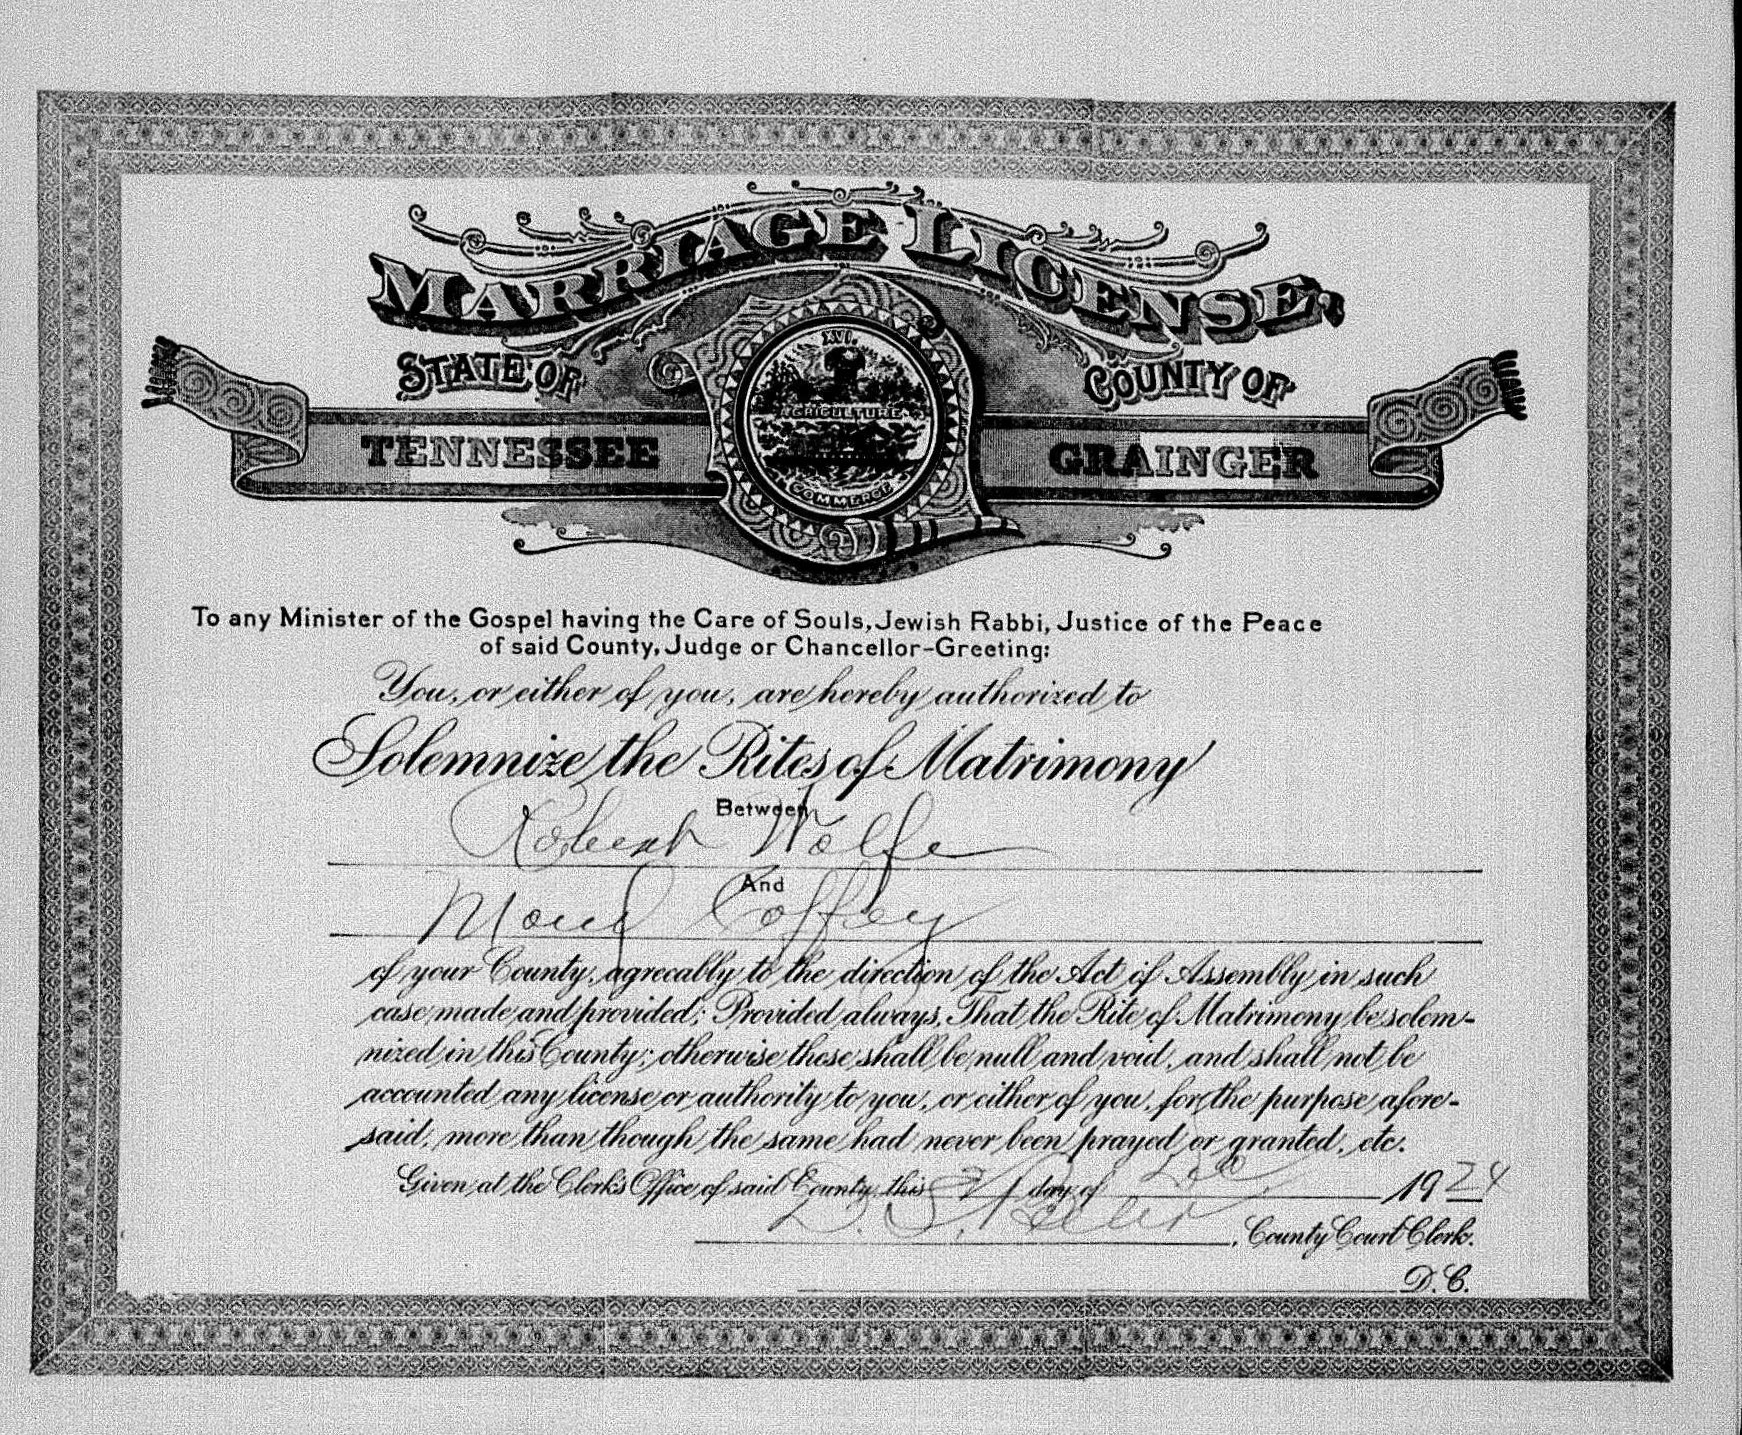 MARRIAGE LICENSE,
STATE OF
COUNTY OF
TENNESSEE
GRAINGER
XVI.
AGRICULTURE
COMMERCE
To any Minister of the Gospel having the Care of Souls, Jewish Rabbi, Justice of the Peace
of said County, Judge or Chancellor-Greeting:
You, or either of you, are hereby authorized to
Solemnize the Rites of Matrimony
Between
Robert Wolfe
And
Coffey
of your County, agreeably to the direction of the Act of Assembly in such
case made and provided; Provided always, That the Rite of Matrimony be solem-
nized in this County; otherwise these shall be null and void, and shall not be
accounted any license or authority to you, or either of you, for the purpose afore-
said, more than though the same had never been prayed or granted, etc.
Given at the Clerk's Office of said County, this day of Dec. 1924
D. S. , County Court Clerk.
D. C.